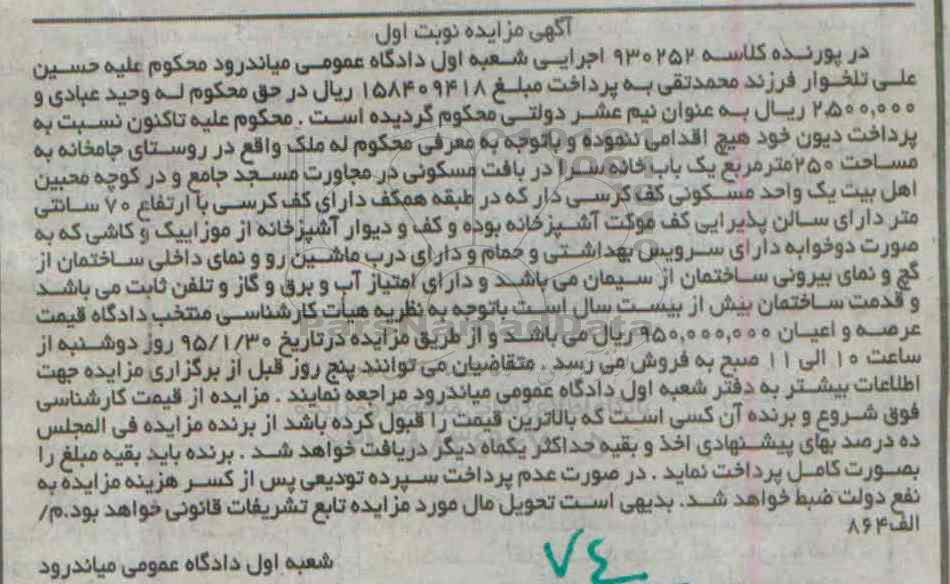 آگهی مزایده نوبت اول
در پرونده کلاسه ۹۳۰۲۵۲ اجرایی شعبه اول دادگاه عمومی میاندرود محکوم علیه حسین
علی تلخوار فرزند محمدتقی به پرداخت مبلغ ۱۵۸۴۰۹۴۱۸ ریال در حق محکوم له وحید عبادی و
۲،۵۰۰،۰۰۰ ریال به عنوان نیم عشر دولتی محکوم گردیده است . محکوم علیه تاکنون نسبت به
پرداخت دیون خود هیچ اقدامی ننموده و باتوجه به معرفی محکوم له ملک واقع در روستای جامخانه به
مساحت ۲۵۰مترمربع یک باب خانه سرا در بافت مسکونی در مجاورت مسجد جامع و در کوچه محبین
اهل بیت یک واحد مسکونی کف کرسی دار که در طبقه همکف دارای کف کرسی با ارتفاع ۷۰ سانتی
متر دارای سالن پذیرایی کف موکت آشپزخانه بوده و کف و دیوار آشپزخانه از موزاییک و کاشی که به
صورت دوخوابه دارای سرویس بهداشتی و حمام و دارای درب ماشین رو و نمای داخلی ساختمان از
گچ و نمای بیرونی ساختمان از سیمان می باشد و دارای امتیاز آب و برق و گاز و تلفن ثابت می باشد
و قدمت ساختمان بیش از بیست سال است باتوجه به نظریه هیأت کارشناسی منتخب دادگاه قیمت
عرصه و اعیان ۹۵۰،۰۰۰،۰۰۰ ریال می باشد و از طریق مزایده درتاریخ ۹۵/۱/۳۰ روز دوشنبه از
ساعت ۱۰ الی ۱۱ صبح به فروش می رسد . متقاضیان می توانند پنج روز قبل از برگزاری مزایده جهت
اطلاعات بیشتر به دفتر شعبه اول دادگاه عمومی میاندرود مراجعه نمایند . مزایده از قیمت کارشناسی
فوق شروع و برنده آن کسی است که بالاترین قیمت را قبول کرده باشد از برنده مزایده فی المجلس
ده درصد بهای پیشنهادی اخذ و بقیه حداکثر یکماه دیگر دریافت خواهد شد . برنده باید بقیه مبلغ را
بصورت کامل پرداخت نماید . در صورت عدم پرداخت سپرده تودیعی پس از کسر هزینه مزایده به
نفع دولت ضبط خواهد شد. بدیهی است تحویل مال مورد مزایده تابع تشریفات قانونی خواهد بود.م/
الف۸۶۴
شعبه اول دادگاه عمومی میاندرود
۷۴
ParsNamadData